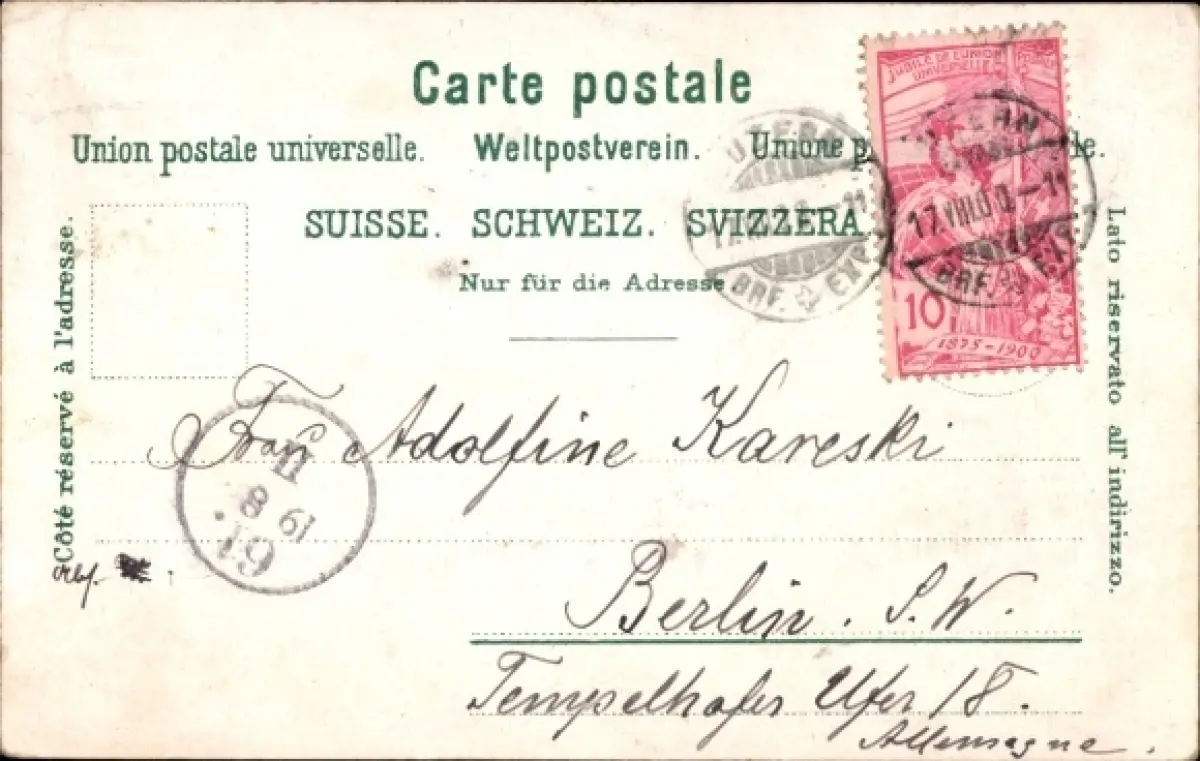 Carte postale
Union postale universelle. Weltpostverein. Unione p le.
SUISSE. SCHWEIZ. SVIZZERA.
Nur für die Adresse
Côté réservé à l'adresse.
Lato riservato all' indirizzo.
JUBILÉ DE L'UNION POSTALE
UNIVERSELLE
10
1875-1900
LUZERN
17.VIII.00.-11
BRF. EXP.
LUZERN
17.VIII.00.-11
BRF. EXP.
Frau Adolfine Kareski
Berlin. S.W.
Tempelhofer Ufer 18.
Allemagne.
Abs.